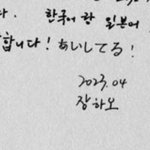 다. 한국어랑 일본어
합니다! あいしてる!
2023.04
장하오